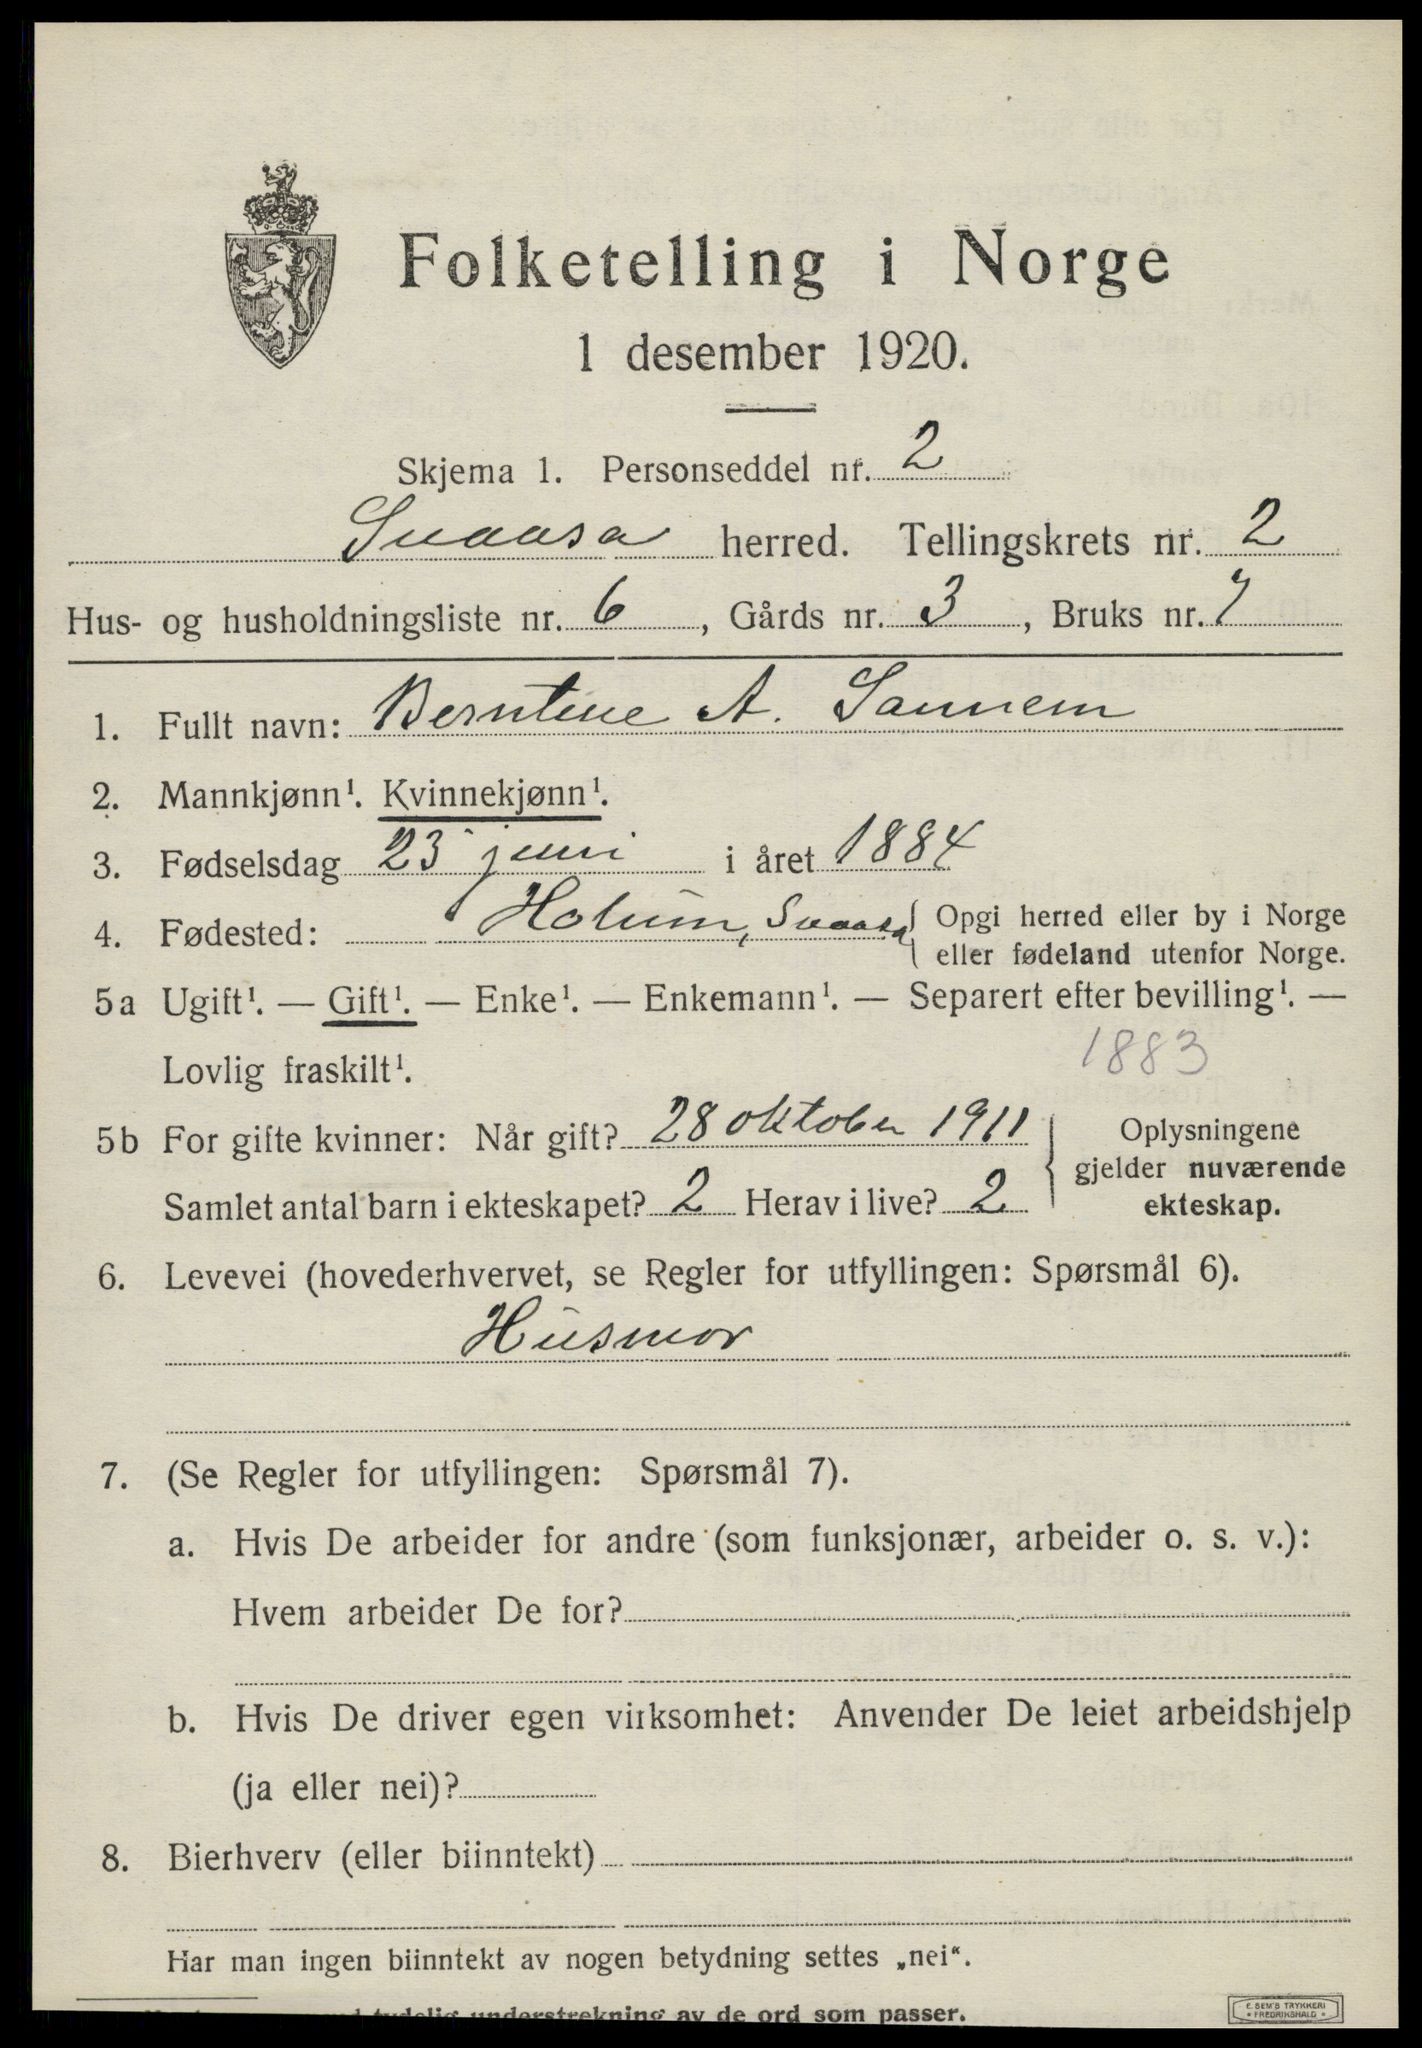 Folketelling i Norge
1 desember 1920.
Skjema 1. Personseddel nr. 2
Snaasa herred. Tellingskrets nr. 2
Hus- og husholdningsliste nr. 6, Gårds nr. 3, Bruks nr. 7
1. Fullt navn: Berntine A. Sannem
2. Mannkjønn¹. Kvinnekjønn¹.
3. Fødselsdag 23 juni i året 1884
4. Fødested: Holum, Snaasa { Opgi herred eller by i Norge
eller fødeland utenfor Norge.
5a Ugift¹. — Gift¹. — Enke¹. — Enkemann¹. — Separert efter bevilling¹. —
Lovlig fraskilt¹. 1883
5b For gifte kvinner: Når gift? 28 oktober 1911 } Oplysningene
gjelder nuværende
Samlet antal barn i ekteskapet? 2 Herav i live? 2 ekteskap.
6. Levevei (hovederhvervet, se Regler for utfyllingen: Spørsmål 6).
Husmor
7. (Se Regler for utfyllingen: Spørsmål 7).
a. Hvis De arbeider for andre (som funksjonær, arbeider o. s. v.):
Hvem arbeider De for?
b. Hvis De driver egen virksomhet: Anvender De leiet arbeidshjelp
(ja eller nei)?
8. Bierhverv (eller biinntekt)
Har man ingen biinntekt av nogen betydning settes „nei“.
tydelig understrekning av de ord som passer.
E. SEM'S TRYKKERI
• FREDRIKSHALD •